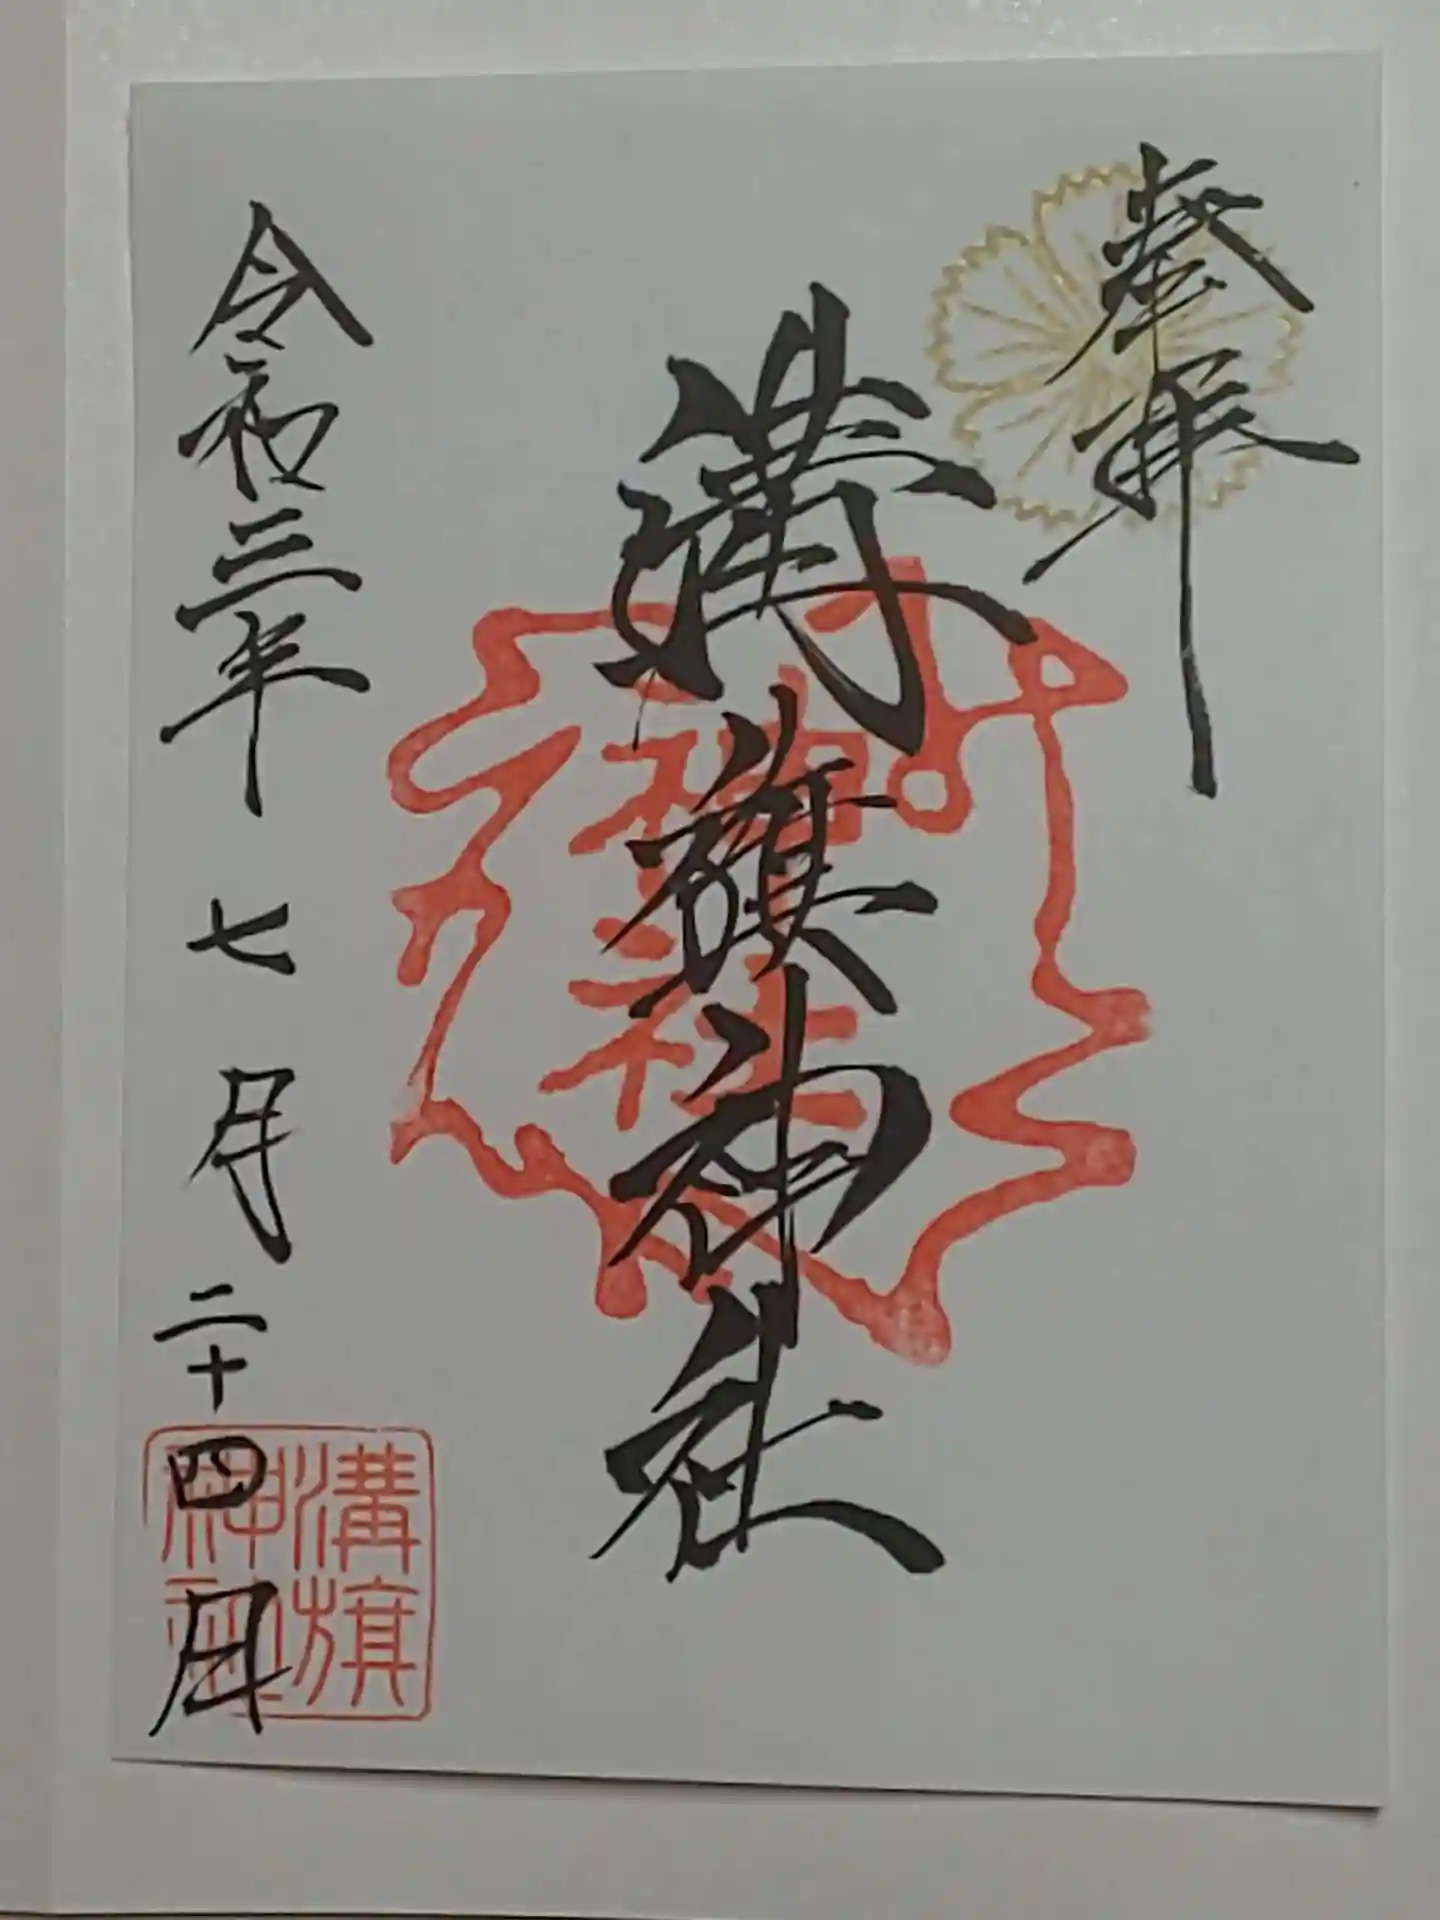 奉拝
溝旗神社
令和三年 七月 二十四日
神社
溝旗
神社